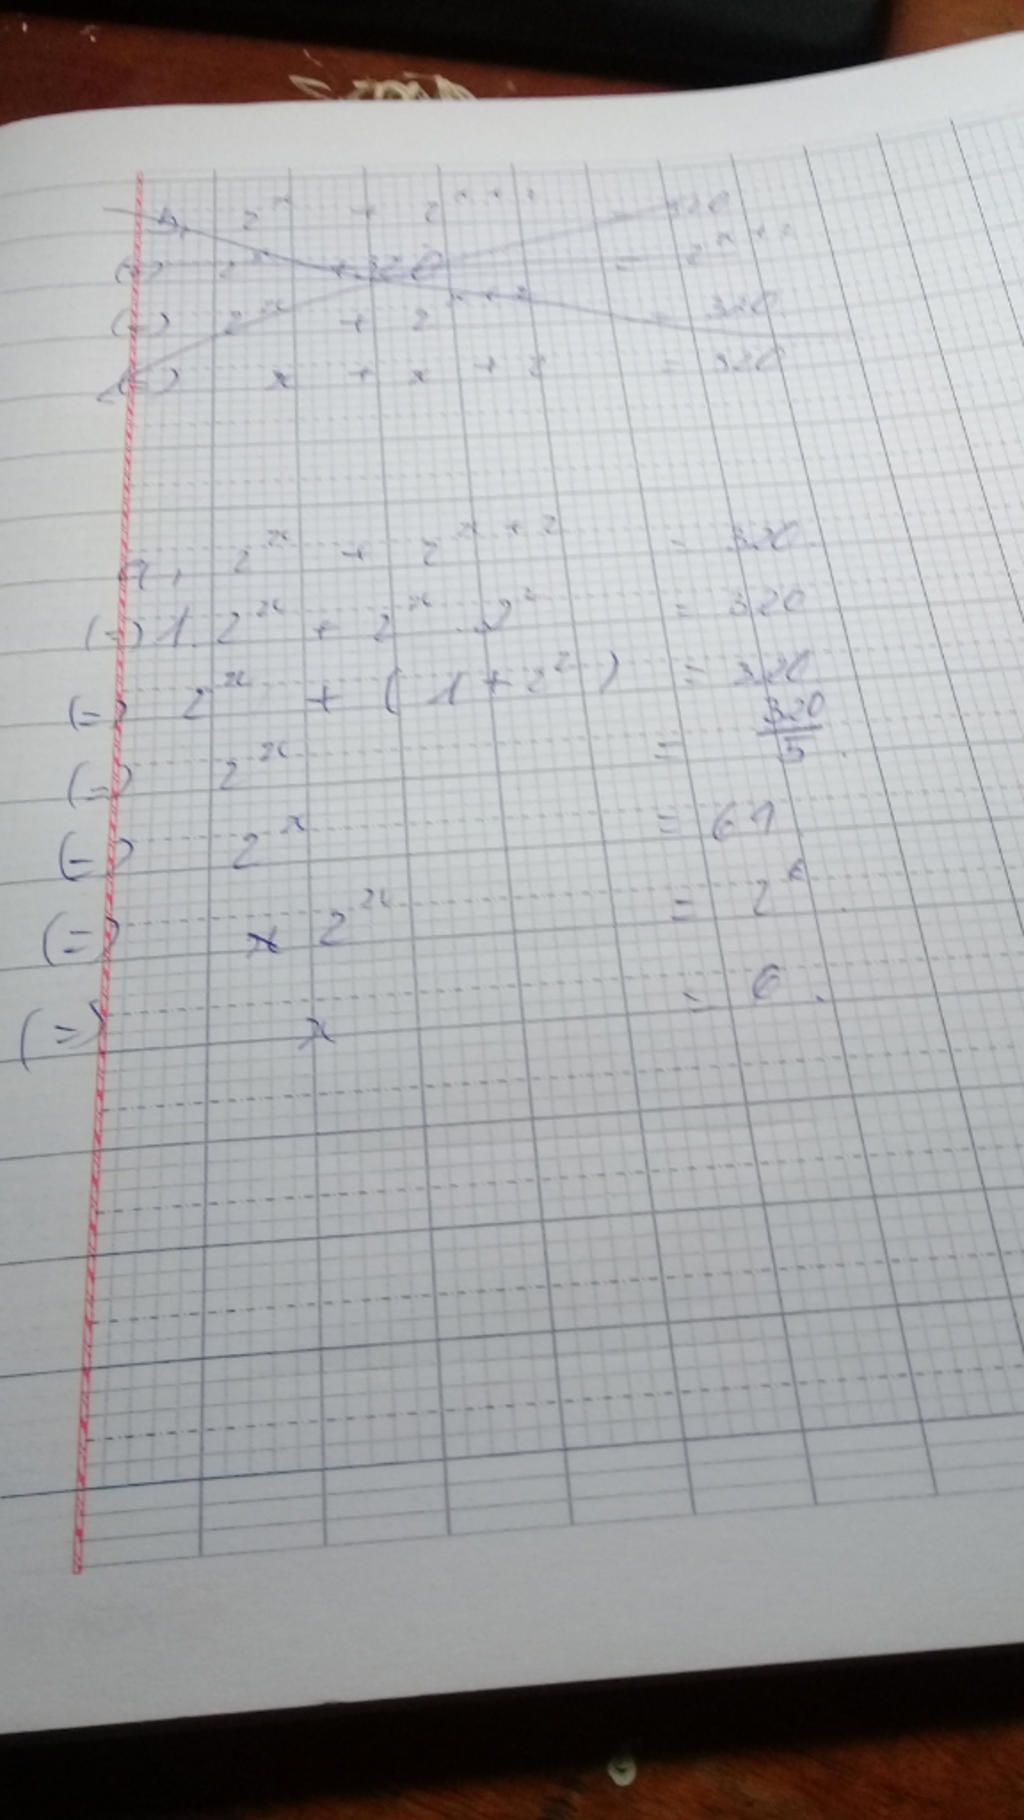 2^x + 2^x+2 = 320
(=) 2^x + 320 = 2^x+2
(=) 2^x + 2^x+2 = 320
(=) x + x + 2 = 320
2^x + 2^x+2 = 320
(=) 1. 2^x + 2^x . 2^2 = 320
(=) 2^x + ( 1 + 2^2 ) = 320
(=) 2^x = 320/5 .
(=) 2^x = 64
(=) 2^x = 2^6 .
(=) x = 6 .